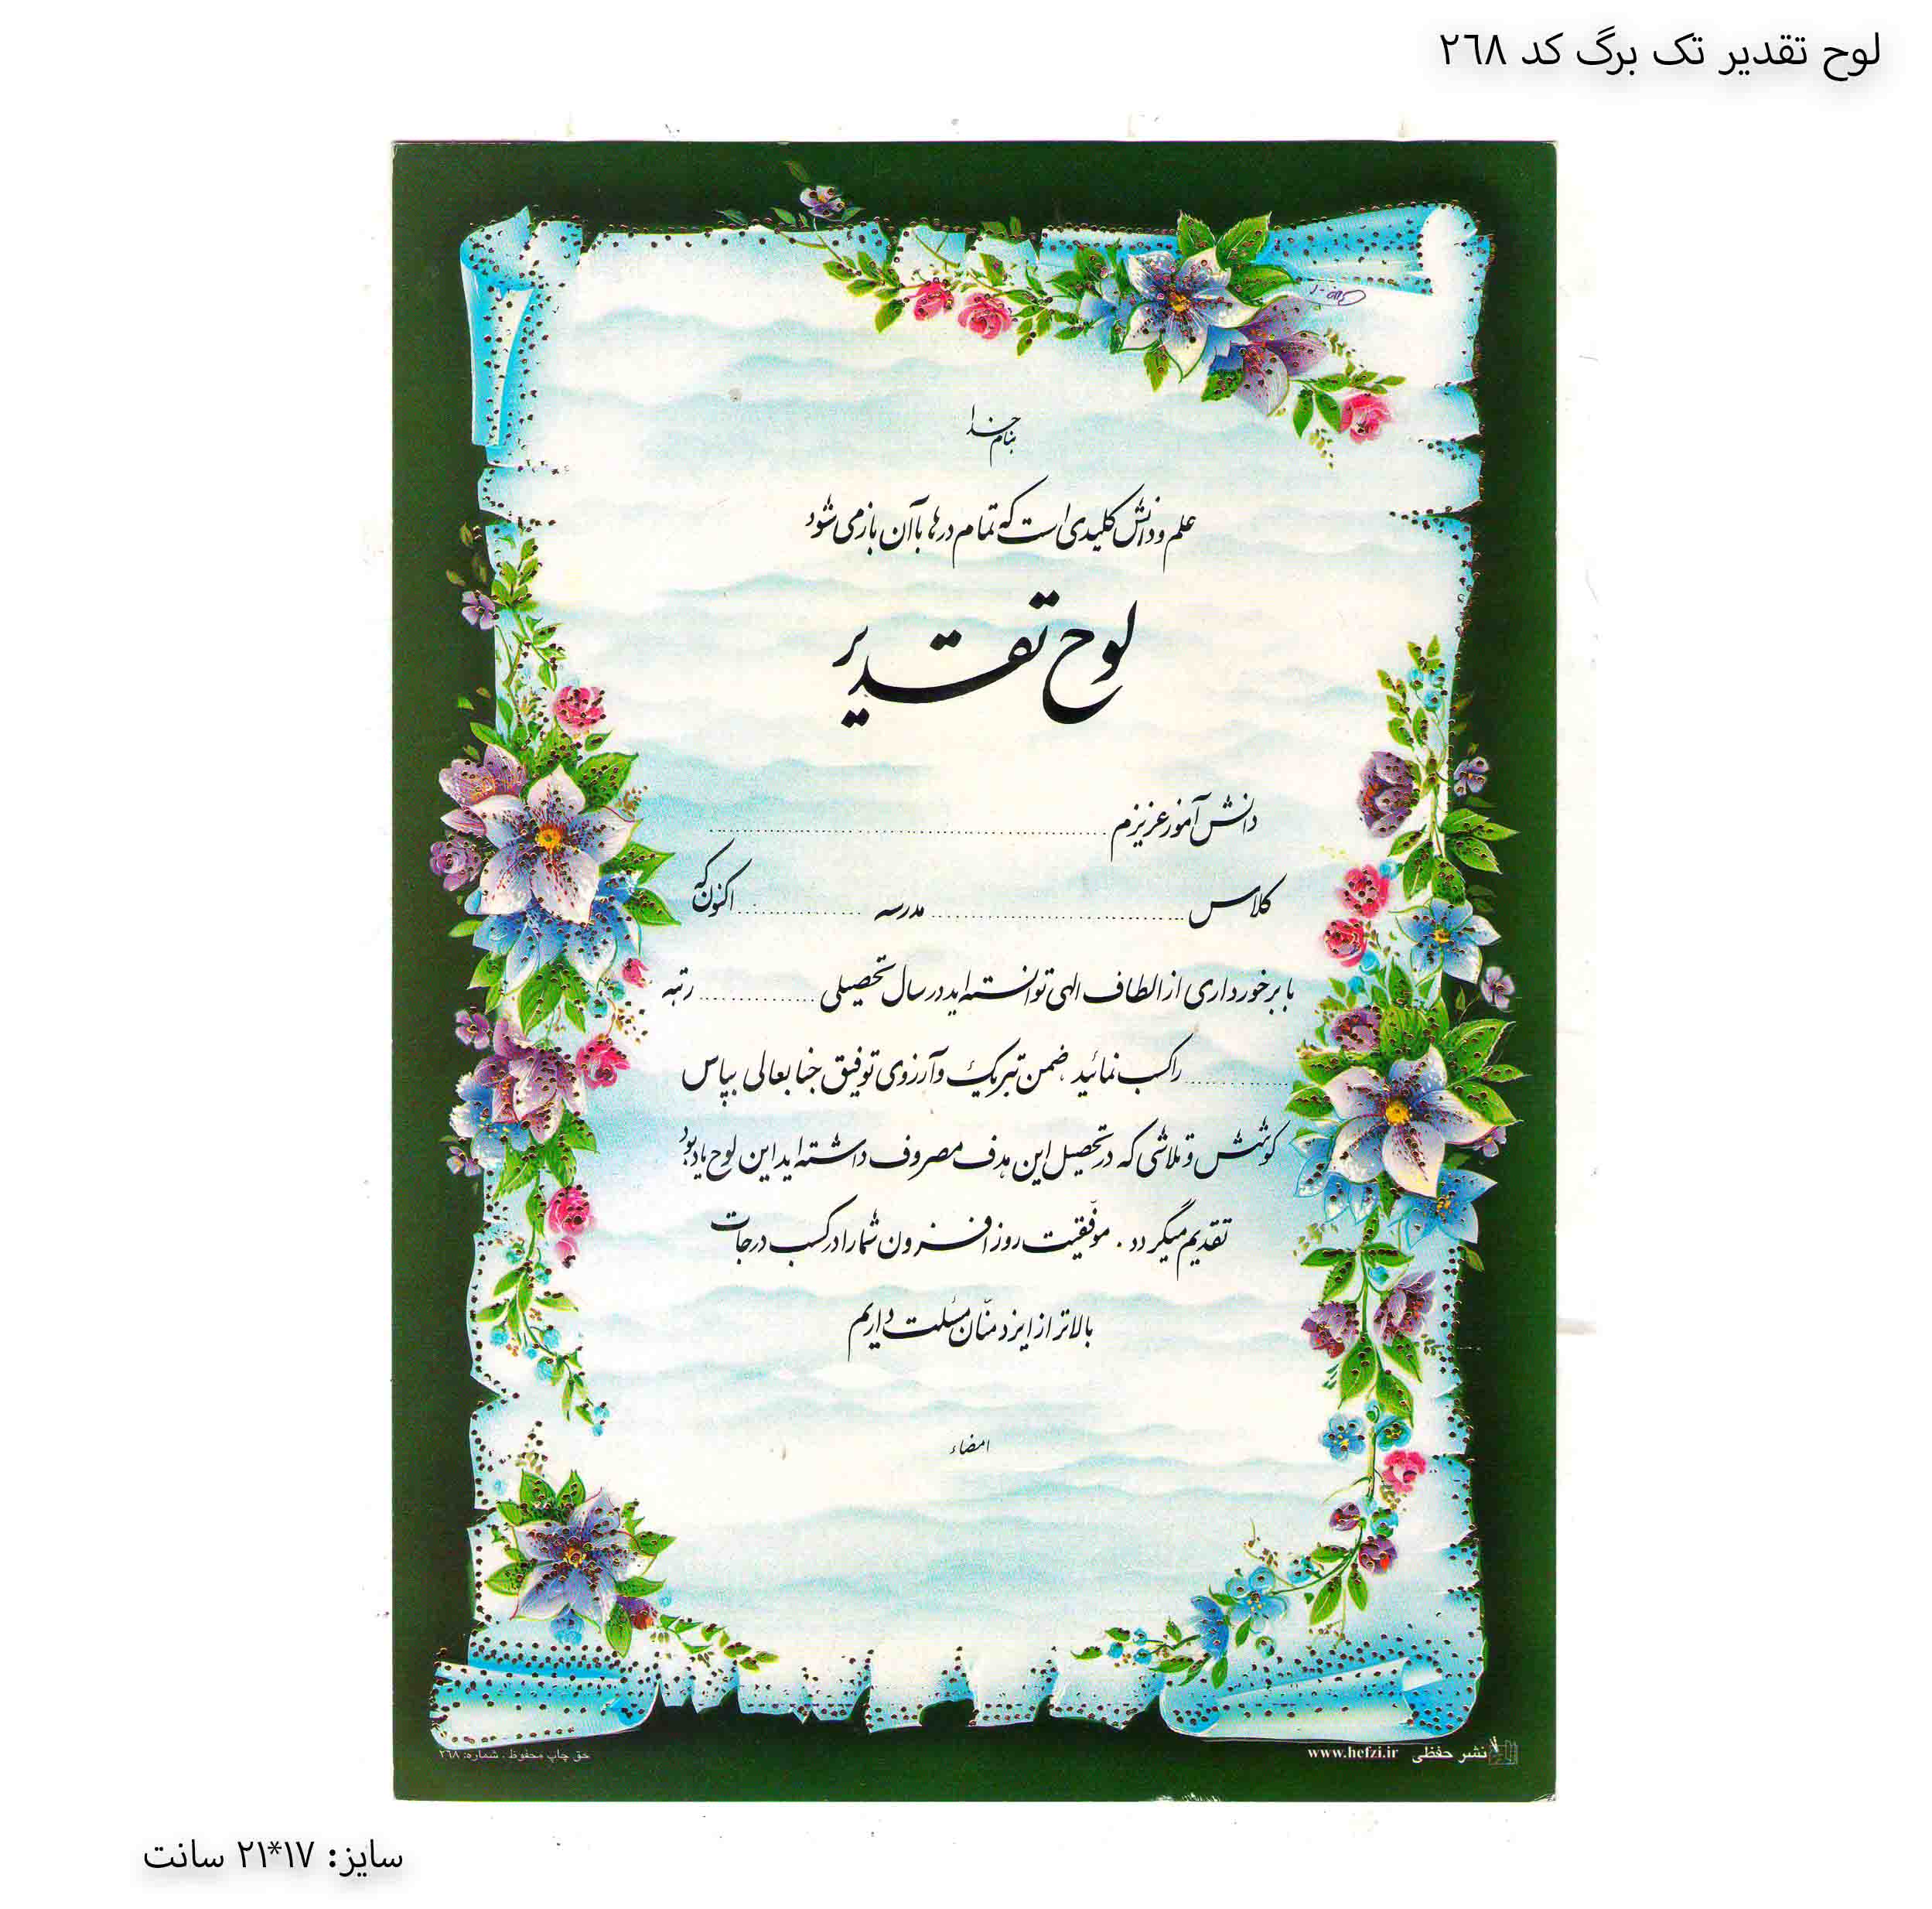 لوح تقدیر تک برگ کد ۲۶۸
بنام خدا
علم و دانش کلیدی است که تمام درها با آن باز می شود
لوح تقدیر
دانش آموز عزیزم ........................
کلاس ........................ مدرسه ............ اکنون که
با برخورداری از الطاف الهی توانسته اید در سال تحصیلی ............ رتبه
............ را کسب نمائید ضمن تبریک و آرزوی توفیق جنابعالی بپاس
کوشش و تلاشی که در تحصیل این هدف مصروف داشته اید این لوح یادبود
تقدیم میگردد . موفّقیت روز افزون شما را در کسب درجات
بالاتر از ایزد منّان مسئلت داریم
امضاء
نشر حفظی www.hefzi.ir
حق چاپ محفوظ . شماره: ۲۶۸
سایز: ۱۷*۲۱ سانت